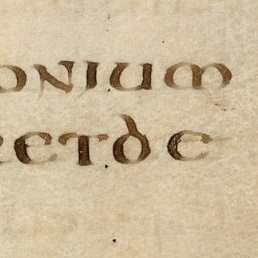 ONIUM
RETDE